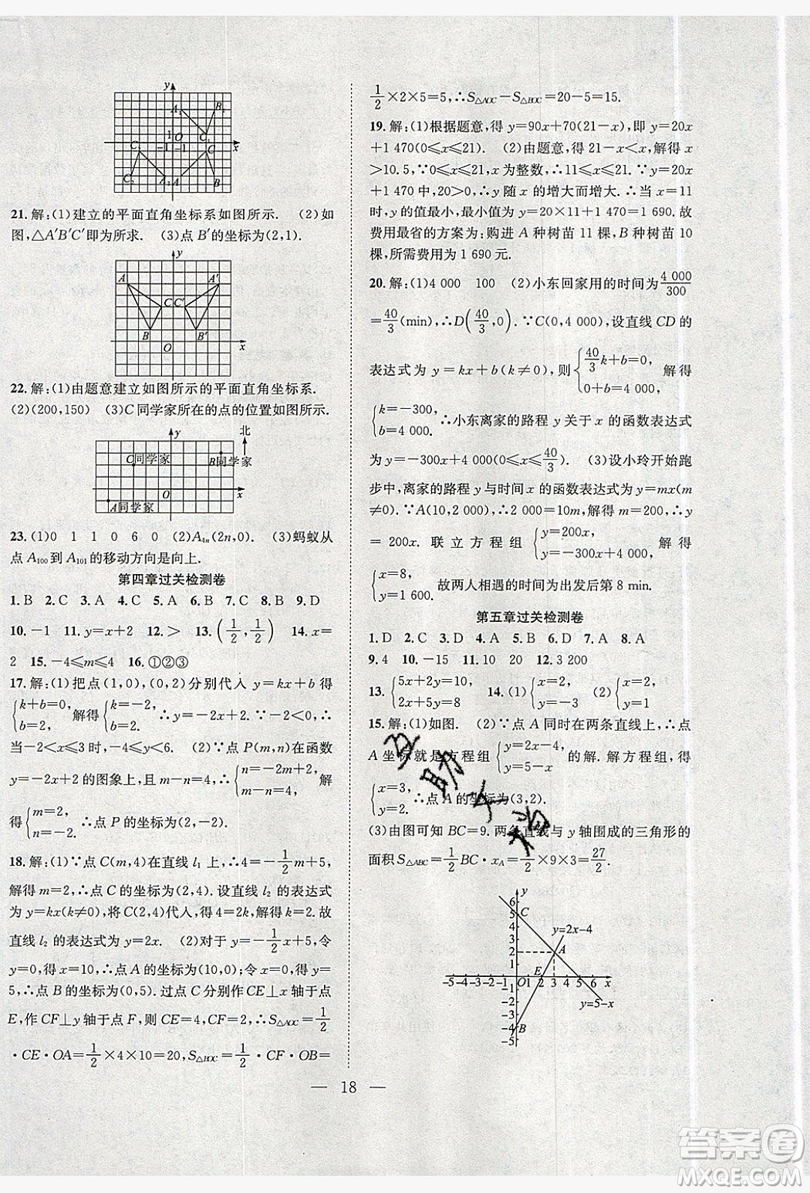 y
A₁
B₁
O 1
C₁
-1
C₂
C
x
B₂
A
B
21.解:(1)建立的平面直角坐标系如图所示. (2)如
图,△A′B′C′即为所求. (3)点 B′的坐标为(2,1).
y
A A′
C C′
B B′
O x
22.解:(1)由题意建立如图所示的平面直角坐标系.
(2)(200,150) (3)C同学家所在的点的位置如图所示.
y 北
C同学家 B同学家
O x
A同学家
23.(1)0 1 1 0 6 0 (2)A₄ₙ(2n,0). (3)蚂蚁从
点 A₁₀₀到 A₁₀₁的移动方向是向上.
第四章过关检测卷
1.B 2.C 3.A 4.C 5.C 6.C 7.B 8.C 9.D
10.-1 11.y=x+2 12.> 13.(1/2,1/2) 14.x=
2 15.-4≤m≤4 16.①②③
17.解:(1)把点(1,0),(0,2)分别代入 y=kx+b 得
{k+b=0, b=2, 解得{k=-2, b=2. ∴y=-2x+2. (2)∵k=-2,∴
当-2<x≤3 时,-4≤y<6. ∵点 P(m,n)在函数
y=-2x+2 的图象上,∴{-2m+2=n, m-n=4, 解得
{m=2, n=-2. ∴点 P 的坐标为(2,-2).
18.解:(1)∵点 C(m,4)在直线 l₁:y=-1/2x+5,
∴4=-1/2m+5,解得 m=2.∴点 C 的坐标为(2,4).设直线 l₂ 的表达式
为 y=kx(k≠0),将 C(2,4)代入,得 4=2k,解得 k=2.故
直线 l₂ 的表达式为 y=2x. (2)对于 y=-1/2x+5,令
y=0,得 x=10;∴点 A 的坐标为(10,0);令 x=0,得
y=5,∴点 B 的坐标为(0,5).过点 C 分别作 CE⊥x 轴于点
E,作 CF⊥y 轴于点 F,则 CE=4,CF=2. ∴S△AOC=1/2
·CE·OA=1/2×4×10=20,S△BOC=1/2·CF·OB=
1/2×2×5=5,∴S△AOC-S△BOC=20-5=15.
19.解:(1)根据题意,得 y=90x+70(21-x),即 y=20x
+1 470(0≤x≤21). (2)由题意,得 21-x<x,解得 x
>10.5,∵x 为整数,∴11≤x≤21.∵y=20x+1 470,
k=20>0,∴y 随 x 的增大而增大.∴当 x=11
时,y 的值最小,最小值为 y=20×11+1 470=1 690.故
费用最省的方案为:购进 A 种树苗 11 棵,B 种树苗 10
棵,所需费用为 1 690 元.
20.解:(1)4 000 100 (2)小东回家用的时间为4 000/300
=40/3(min),∴D(40/3,0). ∵C(0,4 000),设直线 CD 的
表达式为 y=kx+b(k≠0),∴{40/3k+b=0, 0+b=4 000, 解得
{k=-300, b=4 000. ∴小东离家的路程 y 关于 x 的函数表达式
为 y=-300x+4 000(0≤x≤40/3). (3)设小玲开始跑
步中,离家的路程 y 与时间 x 的函数表达式为 y=mx(m
≠0).∵A(10,2 000),∴10m=2 000,解得 m=200.∴y
=200x. 联立方程组{y=200x, y=-300x+4 000, 解得
{x=8, y=1 600. 故两人相遇的时间为出发后第 8 min.
第五章过关检测卷
1.D 2.C 3.D 4.A 5.D 6.B 7.D 8.A
9.4 10.-15 11.20 12.3 200
13.{5x+2y=10, 2x+5y=8 14.(1){x=2, y=-3 (2){x=6, y=1
15.解:(1)如图. (2)∵点 A 同时在两条直线上,∴点
A 坐标就是方程组{y=2x-4, y=5-x 的解.解方程组,得
{x=3, y=2. ∴点 A 的坐标为(3,2).
(3)由图可知 BC=9.两条直线与 y 轴围成的三角形的
面积 S△ABC=1/2BC·xA=1/2×9×3=27/2.
y
5 C
4
3
2
1
y=2x-4
A
E
-5-4-3-2-1 O1 2 3 4 5 6 x
-1
-2
-3
-4
-5
y=5-x
18
互助文档
答案圈
MXQE.COM